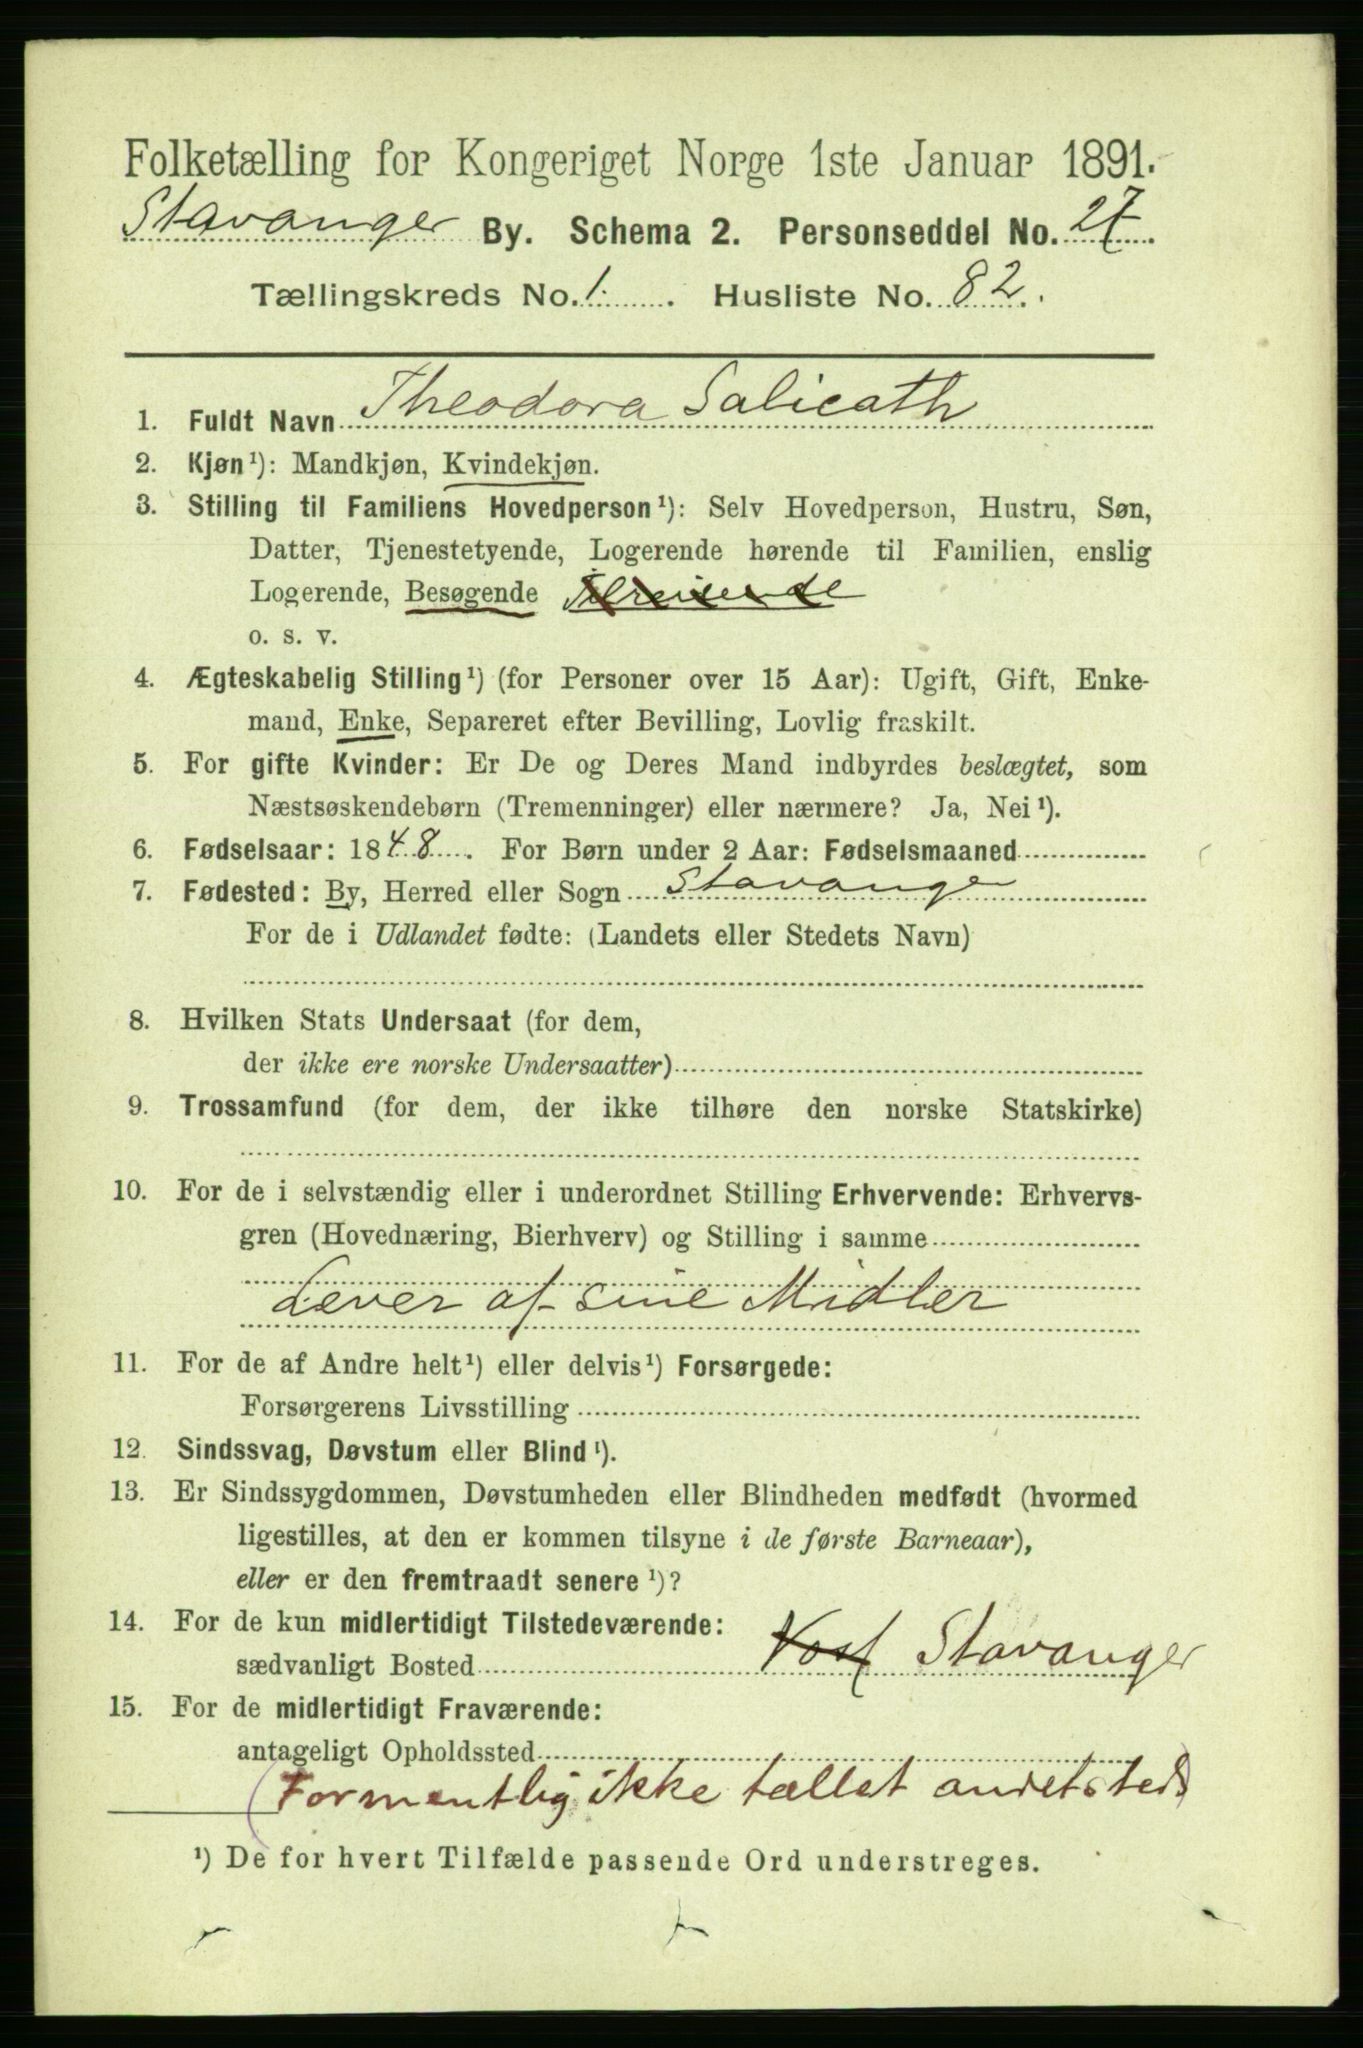 Folketælling for Kongeriget Norge 1ste Januar 1891.
Stavanger By. Schema 2. Personseddel No. 27.
Tællingskreds No. 1. Husliste No. 82.
1. Fuldt Navn Theodora Salicath
2. Kjøn¹): Mandkjøn, Kvindekjøn.
3. Stilling til Familiens Hovedperson¹): Selv Hovedperson, Hustru, Søn,
Datter, Tjenestetyende, Logerende hørende til Familien, enslig
Logerende, Besøgende Tilreisende
o. s. v.
4. Ægteskabelig Stilling¹) (for Personer over 15 Aar): Ugift, Gift, Enke-
mand, Enke, Separeret efter Bevilling, Lovlig fraskilt.
5. For gifte Kvinder: Er De og Deres Mand indbyrdes beslægtet, som
Næstsøskendebørn (Tremenninger) eller nærmere? Ja, Nei¹).
6. Fødselsaar: 1848. For Børn under 2 Aar: Fødselsmaaned
7. Fødested: By, Herred eller Sogn Stavanger
For de i Udlandet fødte: (Landets eller Stedets Navn)
8. Hvilken Stats Undersaat (for dem,
der ikke ere norske Undersaatter)
9. Trossamfund (for dem, der ikke tilhøre den norske Statskirke)
10. For de i selvstændig eller i underordnet Stilling Erhvervende: Erhvervs-
gren (Hovednæring, Bierhverv) og Stilling i samme
Lever af sine Midler
11. For de af Andre helt¹) eller delvis¹) Forsørgede:
Forsørgerens Livsstilling
12. Sindssvag, Døvstum eller Blind¹).
13. Er Sindssygdommen, Døvstumheden eller Blindheden medfødt (hvormed
ligestilles, at den er kommen tilsyne i de første Barneaar),
eller er den fremtraadt senere¹)?
14. For de kun midlertidigt Tilstedeværende:
sædvanligt Bosted Stavanger
15. For de midlertidigt Fraværende:
antageligt Opholdssted
(Formentlig ikke tællet andetsteds)
¹) De for hvert Tilfælde passende Ord understreges.